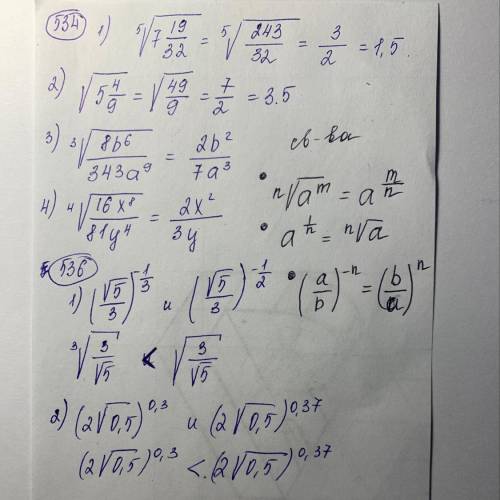 534 1) ⁵√(7 19/32) = ⁵√(243/32) = 3/2 = 1,5
2) √(5 4/9) = √(49/9) = 7/2 = 3.5
3) ³√(8b⁶/343a⁹) = 2b²/7a³
св-ва
4) ⁴√(16x⁸/81y⁴) = 2x²/3y
• ⁿ√(aᵐ) = a^(m/n)
• a^(1/n) = ⁿ√a
• (a/b)^(-n) = (b/a)^n
536
1) (√5/3)^(-1/3) и (√5/3)^(-1/2)
³√(3/√5) < √(3/√5)
2) (2√0,5)^0,3 и (2√0,5)^0,37
(2√0,5)^0,3 < (2√0,5)^0,37